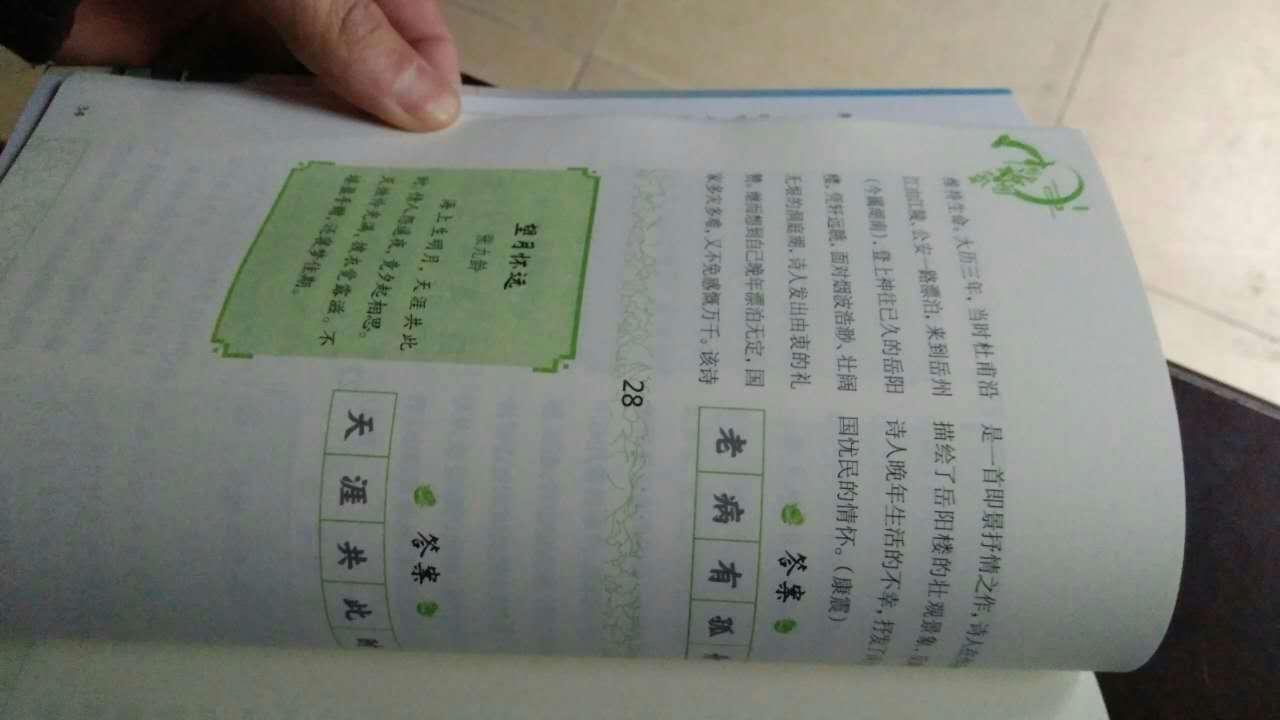 维持生命。大历三年，当时杜甫沿
江由江陵、公安一路漂泊，来到岳州
（今属湖南）。登上神往已久的岳阳
楼，凭轩远眺，面对烟波浩渺、壮阔
无垠的洞庭湖，诗人发出由衷的礼
赞，继而想到自己晚年漂泊无定，国
家多灾多难，又不免感慨万千。该诗
是一首即景抒情之作，诗人在
描绘了岳阳楼的壮观景象，
诗人晚年生活的不幸，抒发了
国忧民的情怀。（康震）
答案
老病有孤
28
望月怀远
张九龄
海上生明月，天涯共此
时。情人怨遥夜，竟夕起相思。
灭烛怜光满，披衣觉露滋。不
堪盈手赠，还寝梦佳期。
答案
天涯共此